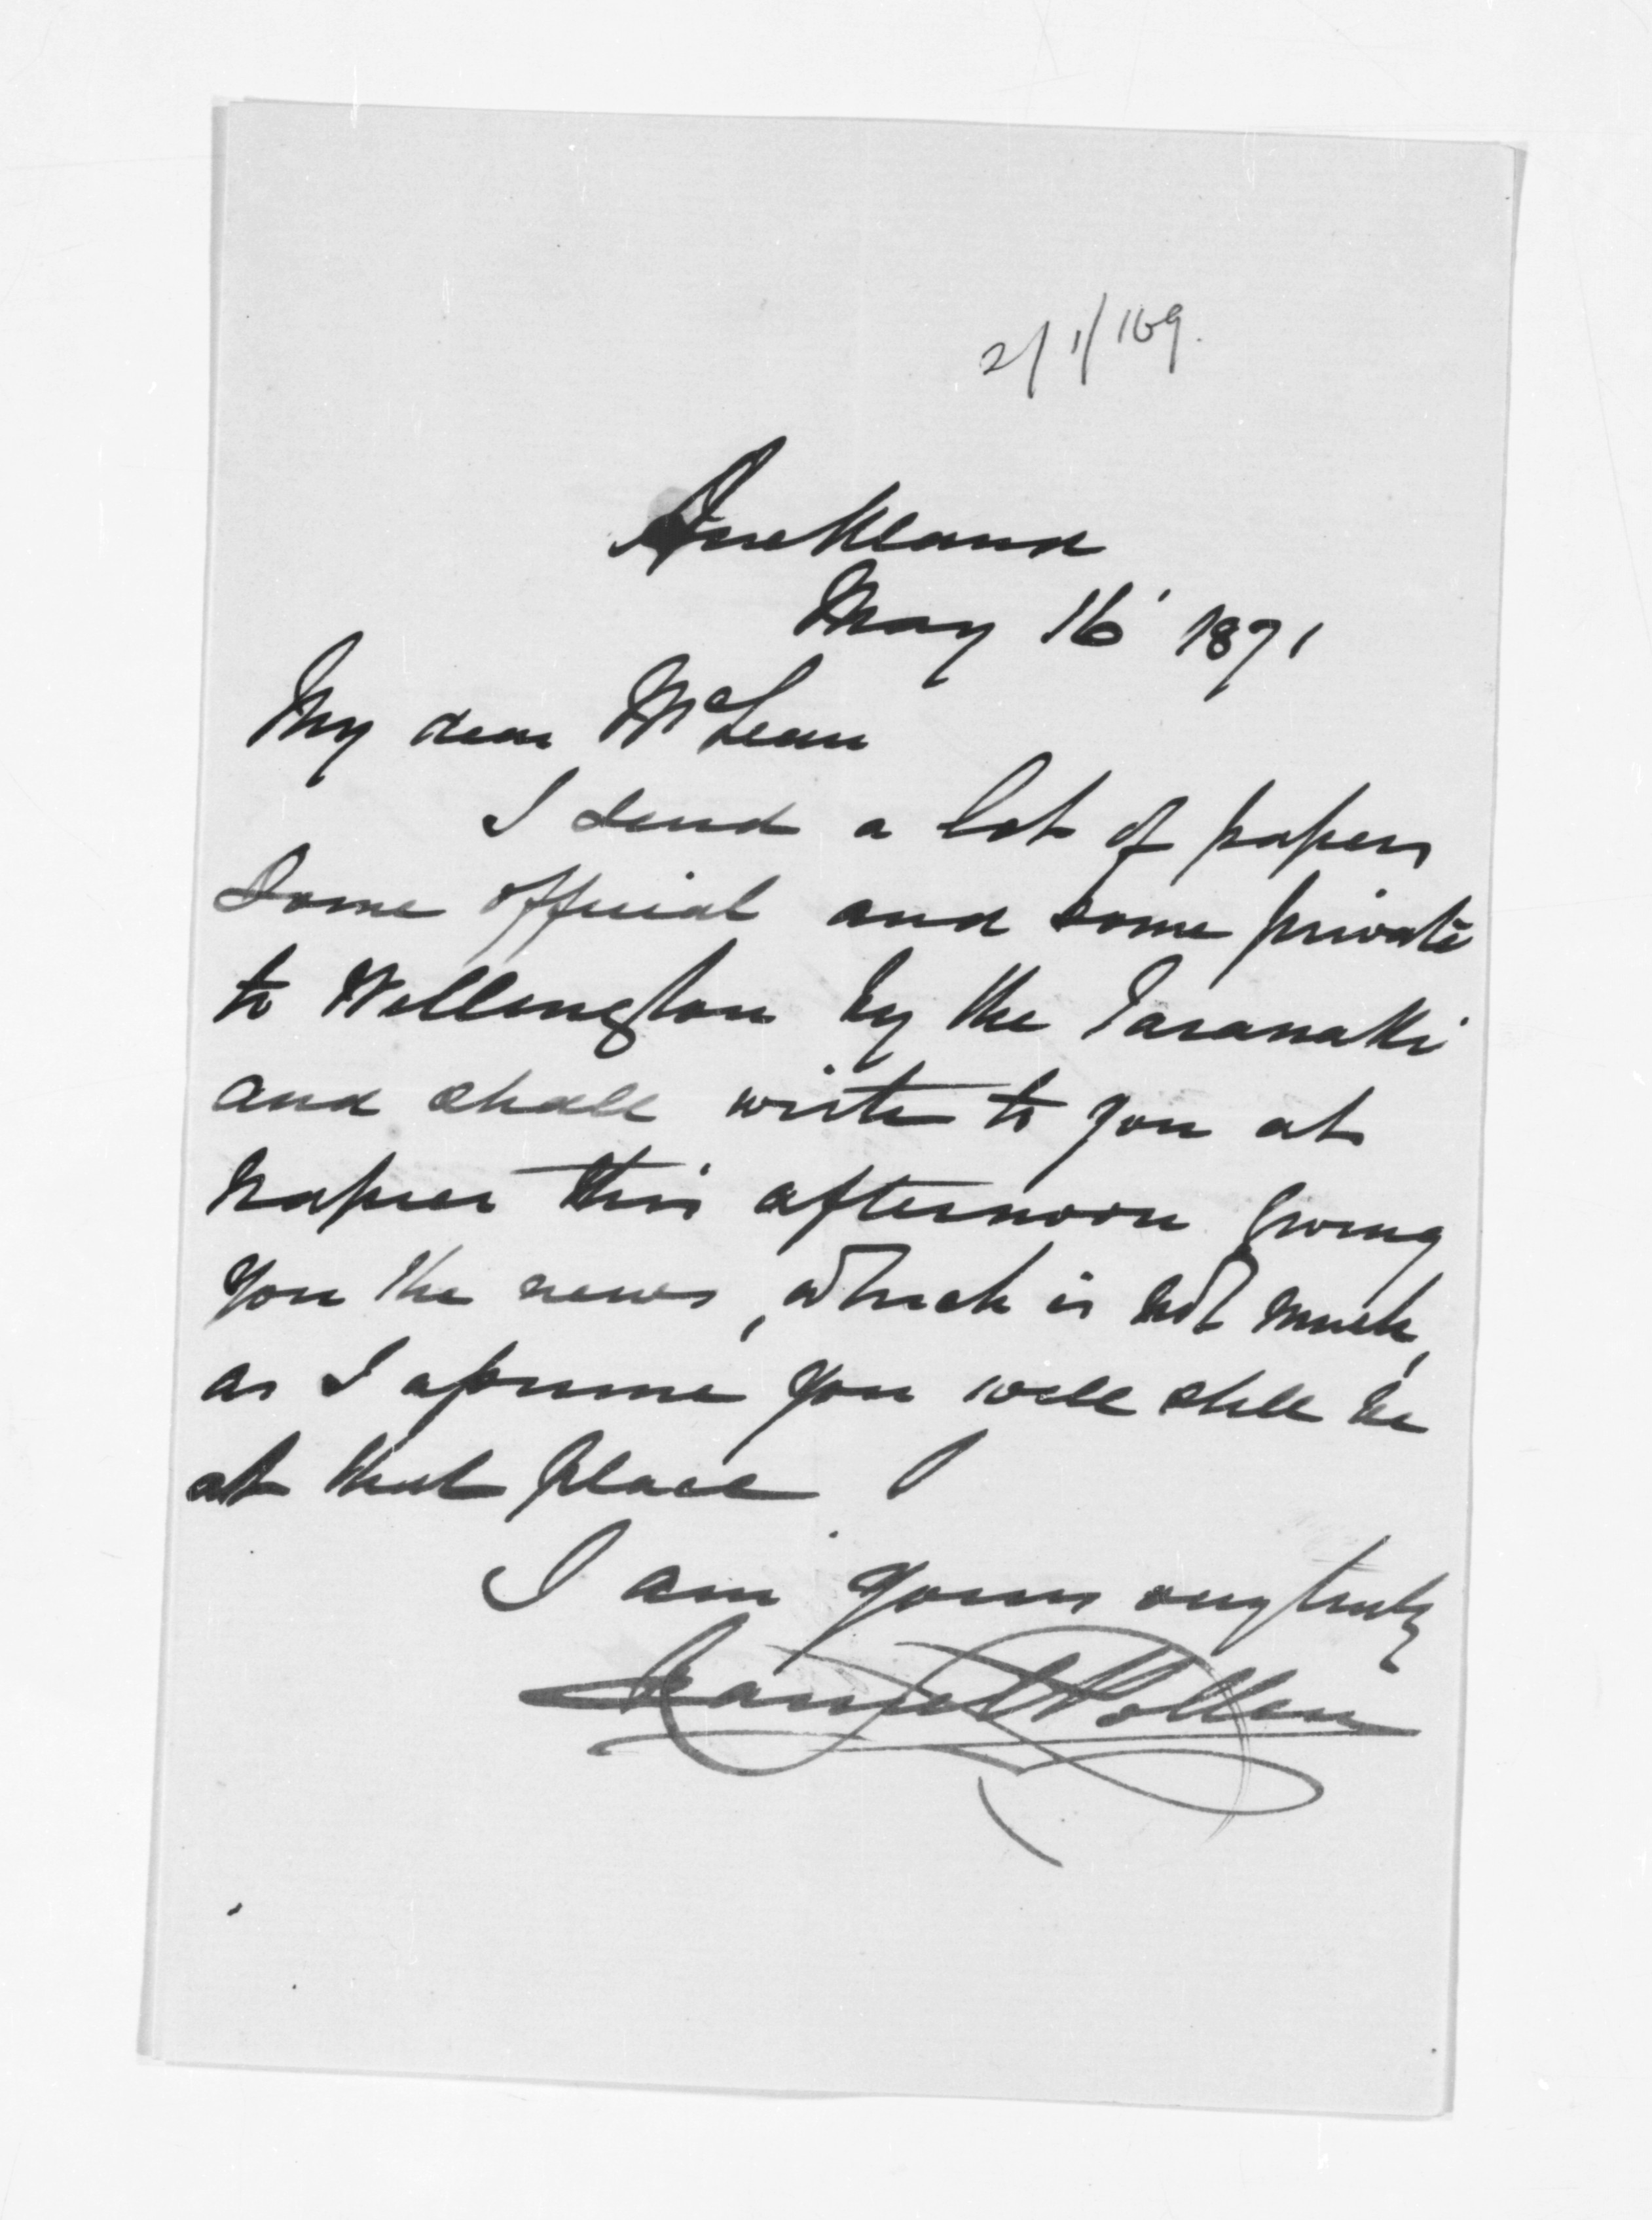 2/1/169.
Auckland
May 16' 1871
My dear McLean
I send a lot of papers
some official and some private
to Wellington by the Taranaki
and shall write to you at
Napier this afternoon giving
you the news, which is not much,
as I assume you will still be
at that place
I am yours very truly
Daniel Pollen